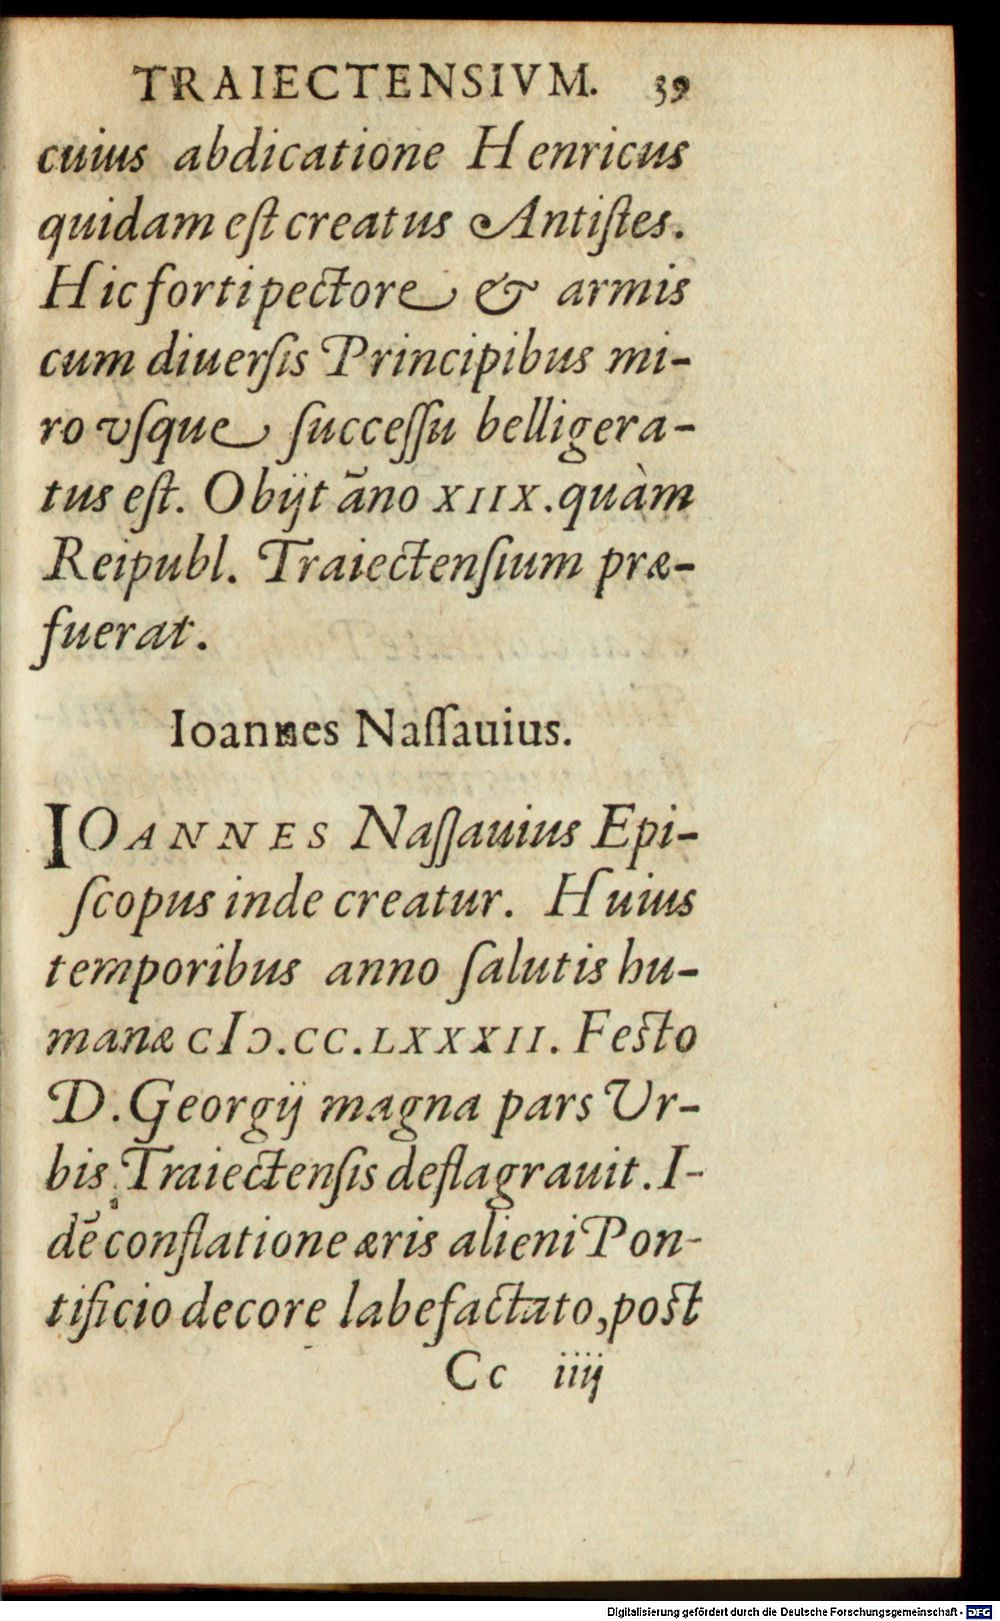 TRAIECTENSIVM. 39
cuius abdicatione Henricus
quidam eſt creatus Antiſtes.
Hic forti pectore & armis
cum diuerſis Principibus mi-
ro vſque ſucceſſu belligera-
tus eſt. Obijt āno XIIX. quàm
Reipubl. Traiectenſium præ-
fuerat.
Ioannes Naſſauius.
IOANNES Naſſauius Epi-
ſcopus inde creatur. Huius
temporibus anno ſalutis hu-
manæ cIↄ.CC.LXXXII. Feſto
D. Georgij magna pars Vr-
bis Traiectenſis deflagrauit. I-
dē conflatione æris alieni Pon-
tificio decore labefactato, poſt
Cc iiij
Digitalisierung gefördert durch die Deutsche Forschungsgemeinschaft - DFG